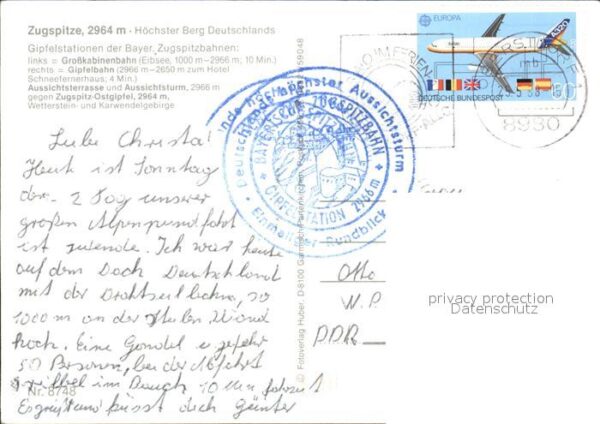 Zugspitze, 2964 m · Höchster Berg Deutschlands
Gipfelstationen der Bayer. Zugspitzbahnen:
links = Großkabinenbahn (Eibsee, 1000 m—2966 m; 10 Min.)
rechts = Gipfelbahn (2966 m—2650 m zum Hotel
Schneefernerhaus; 4 Min.)
Aussichtsterrasse und Aussichtsturm, 2966 m
gegen Zugspitz-Ostgipfel, 2964 m,
Wetterstein- und Karwendelgebirge
Liebe Christa!
Heut ist Sonntag
der 2 Tag unserer
großen Alpenrundfahrt
ist zuende. Ich war heute
auf dem Dach Deutschland
mit der Drahtseilbahn, so
1000 m an der steilen Wand
hoch. Eine Gondel ungefähr
50 Personen, bei der Abfahrt
im Bauch 10 Min
küsst dich Günter
Nr. 8748
© Fotoverlag Huber, D-8100 Garmisch-Partenkirchen
Deutschlands höchster Aussichtsturm
BAYERISCHE ZUGSPITZBAHN
GIPFELSTATION 2966 m
Einmaliger Rundblick
EUROPA
A320
DEUTSCHE BUNDESPOST
60
8980
Otto
W. P
DDR
privacy protection
Datenschutz